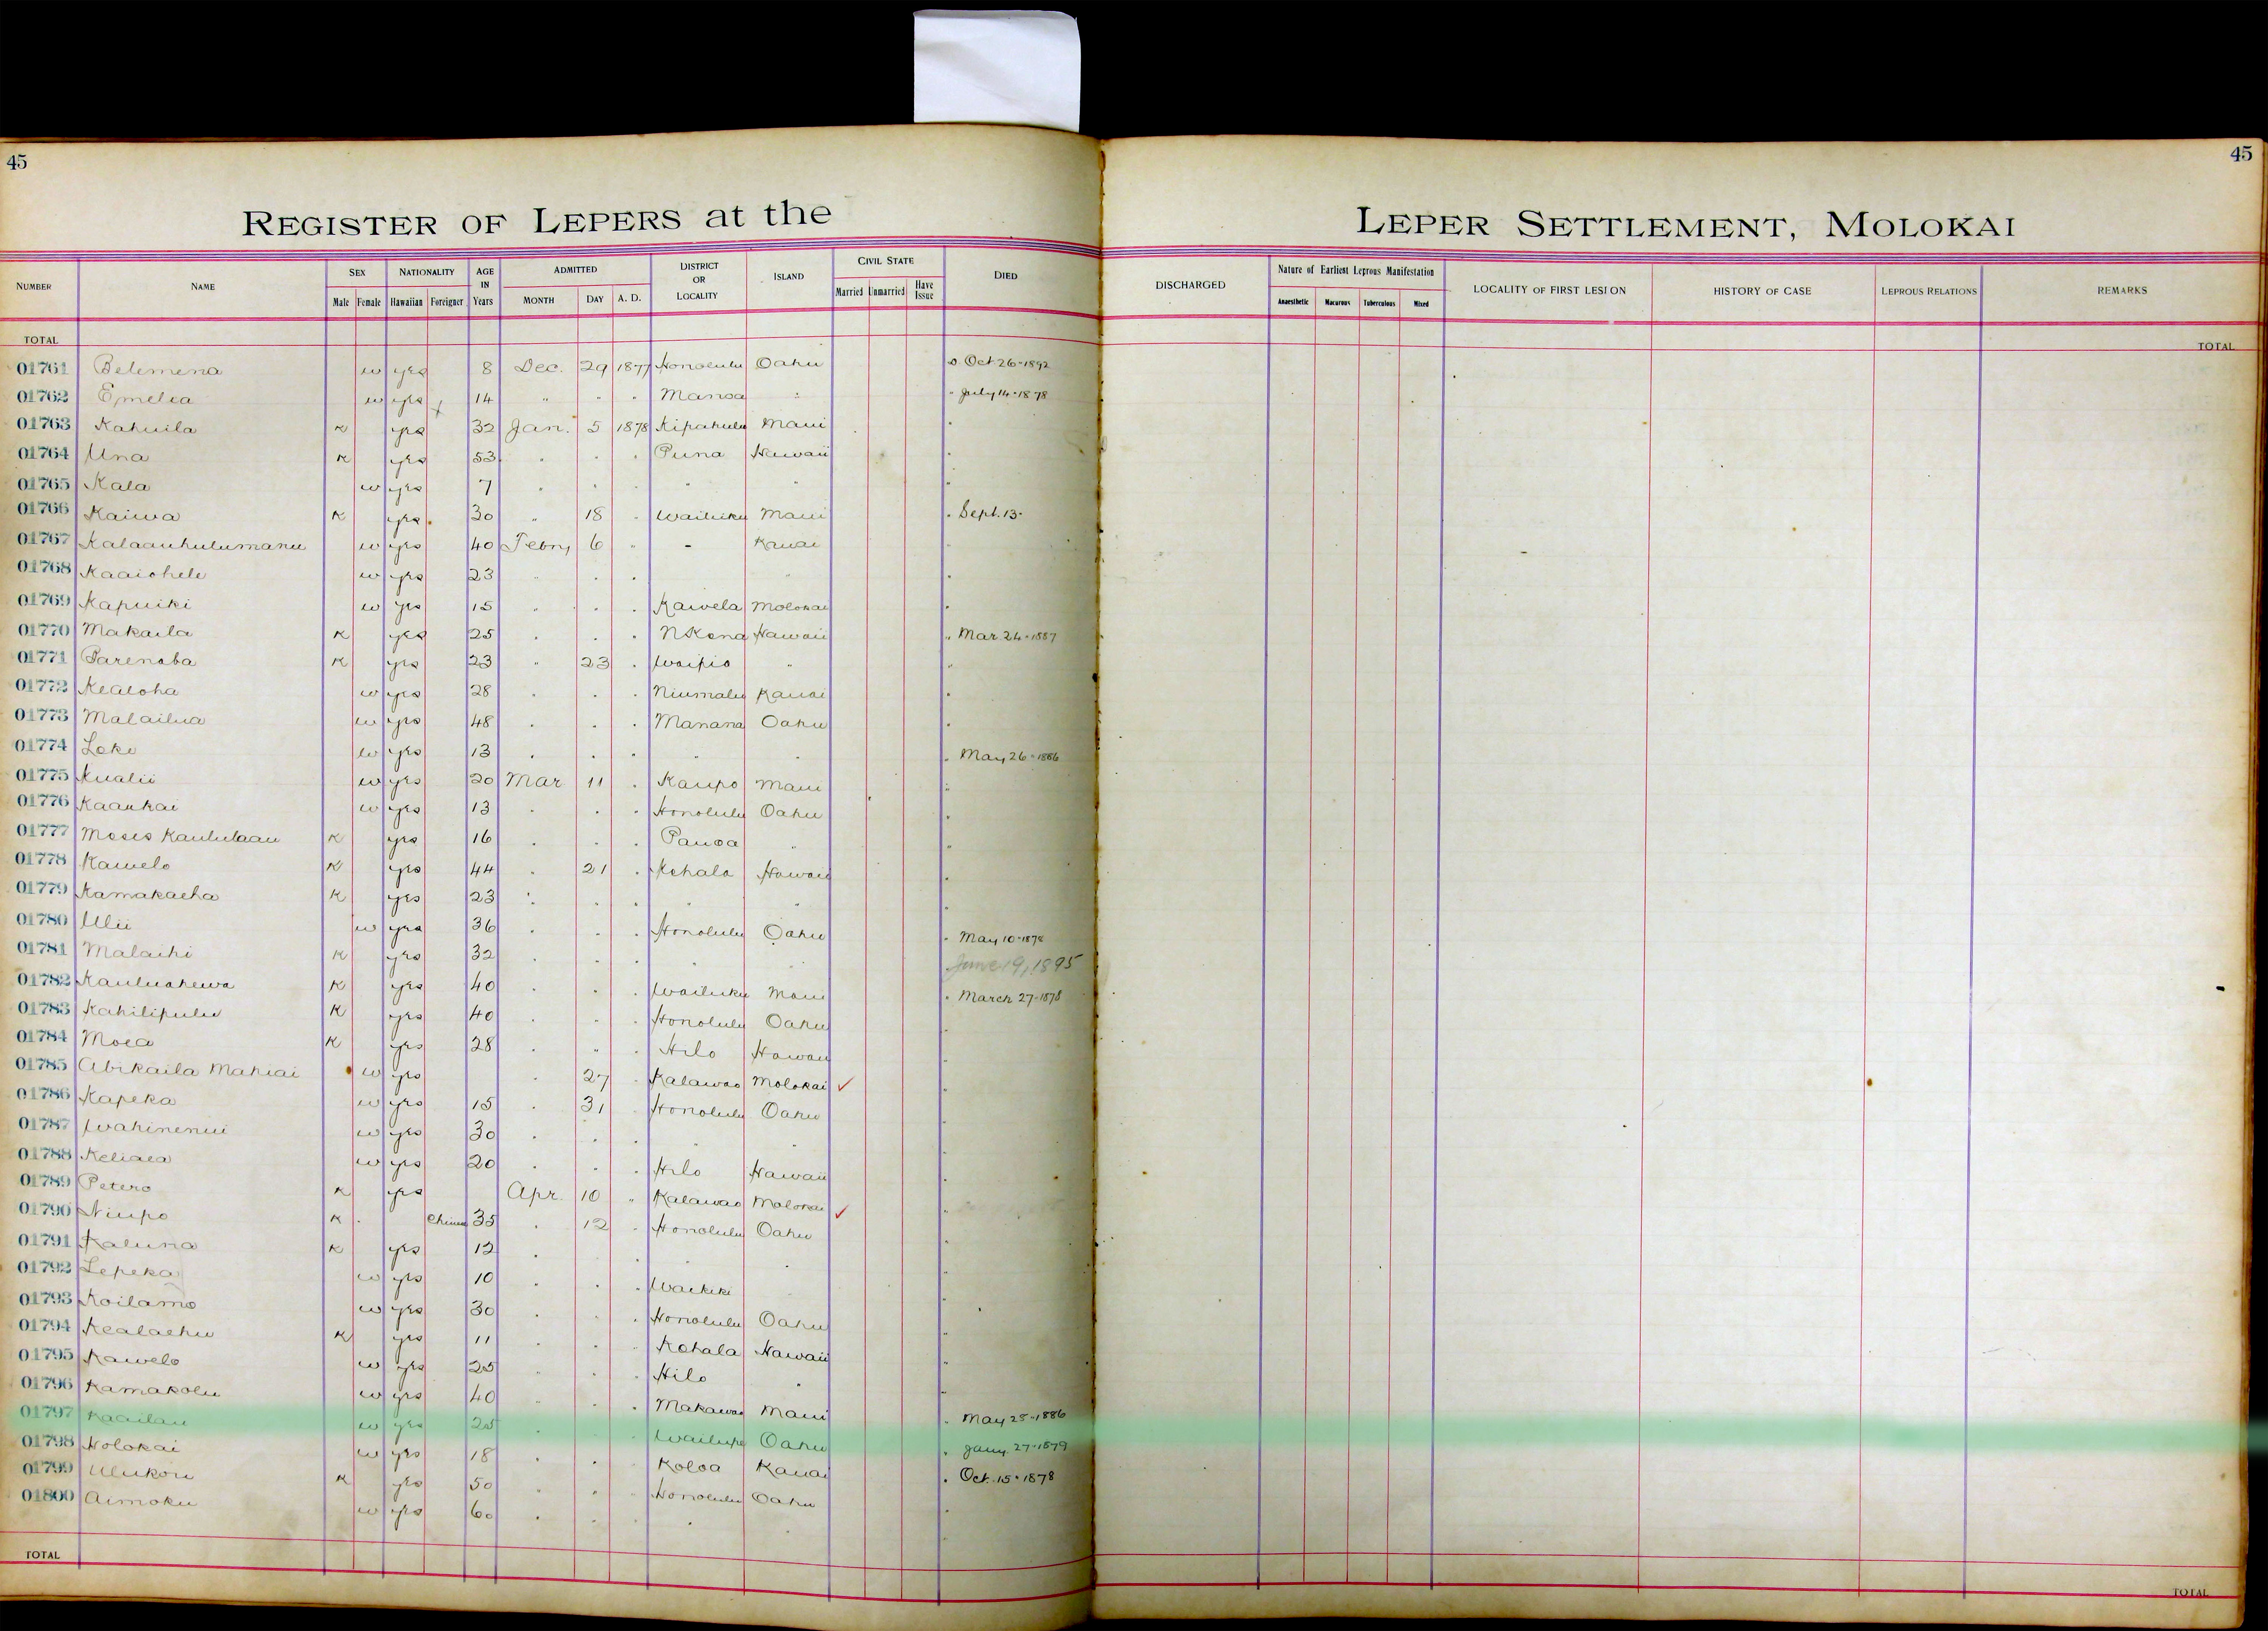 45
45
REGISTER OF LEPERS at the LEPER SETTLEMENT, MOLOKAI
NUMBER NAME SEX Male Female NATIONALITY Hawaiian Foreigner AGE IN Years ADMITTED MONTH DAY A. D. DISTRICT OR LOCALITY ISLAND CIVIL STATE Married Unmarried Have Issue DIED DISCHARGED Nature of Earliest Leprous Manifestation Anaesthetic Macurous Tuberculous Mixed LOCALITY OF FIRST LESION HISTORY OF CASE LEPROUS RELATIONS REMARKS
TOTAL TOTAL
01761 Belemena w yes 8 Dec. 29 1877 Honolulu Oahu Oct 26-1892
01762 Emelia w yes 14 " " " Manoa " July 14-1878
01763 Kahuila K yes 32 Jan. 5 1878 Kipahulu Maui
01764 Una K yes 53 " " " Puna Hawaii
01765 Kala w yes 7 " " " " "
01766 Kaiwa K yes 30 " 18 " Wailuku Maui " Sept. 13-
01767 Kalaauhulumanu w yes 40 Febry 6 " - Kauai
01768 Kaaiohele w yes 23 " " " "
01769 Kapuiki w yes 15 " " " Kawela Molokai
01770 Makaila K yes 25 " " " N Kona Hawaii " Mar 24-1887
01771 Parenaba K yes 23 " 23 " Waipio "
01772 Kealoha w yes 28 " " " Niumalu Kauai
01773 Malailua w yes 48 " " " Manana Oahu
01774 Loke w yes 13 " " " " " May 26-1886
01775 Kualii w yes 20 Mar 11 " Kaupo Maui
01776 Kaaukai w yes 13 " " " Honolulu Oahu
01777 Moses Kaululaau K yes 16 " " " Pauoa "
01778 Kawelo K yes 44 " 21 " Kohala Hawaii
01779 Kamakaeha K yes 23 " " " " "
01780 Ulii w yes 36 " " " Honolulu Oahu " May 10-1878
01781 Malaihi K yes 32 " " " " " June 19, 1895
01782 Kauluahewa K yes 40 " " " Wailuku Maui " March 27-1878
01783 Kahilipulu K yes 40 " " " Honolulu Oahu
01784 Moea K yes 28 " " " Hilo Hawaii
01785 Abikaila Mahiai w yes " 27 " Kalawao Molokai ✓
01786 Kapeka w yes 15 " 31 " Honolulu Oahu
01787 Wahinenui w yes 30 " " " " "
01788 Keliaea w yes 20 " " " Hilo Hawaii
01789 Petero K yes Apr. 10 " Kalawao Molokai ✓
01790 Niupo K 35 " 12 " Honolulu Oahu
01791 Kaluna K yes 12 " " " "
01792 Lepeka w yes 10 " " " Waikiki "
01793 Koilamo w yes 30 " " " Honolulu Oahu
01794 Kealaehu K yes 11 " " " Kohala Hawaii
01795 Kawelo w yes 25 " " " Hilo "
01796 Kamakolu w yes 40 " " " Makawao Maui " May 25-1886
01797 Kaailau w yes 25 " " " Wailupe Oahu " Jany. 27-1879
01798 Holokai w yes 18 " " " Koloa Kauai " Oct. 15-1878
01799 Ulukou K yes 50 " " " Honolulu Oahu
01800 Aimoku w yes 60 " " " " "
TOTAL TOTAL